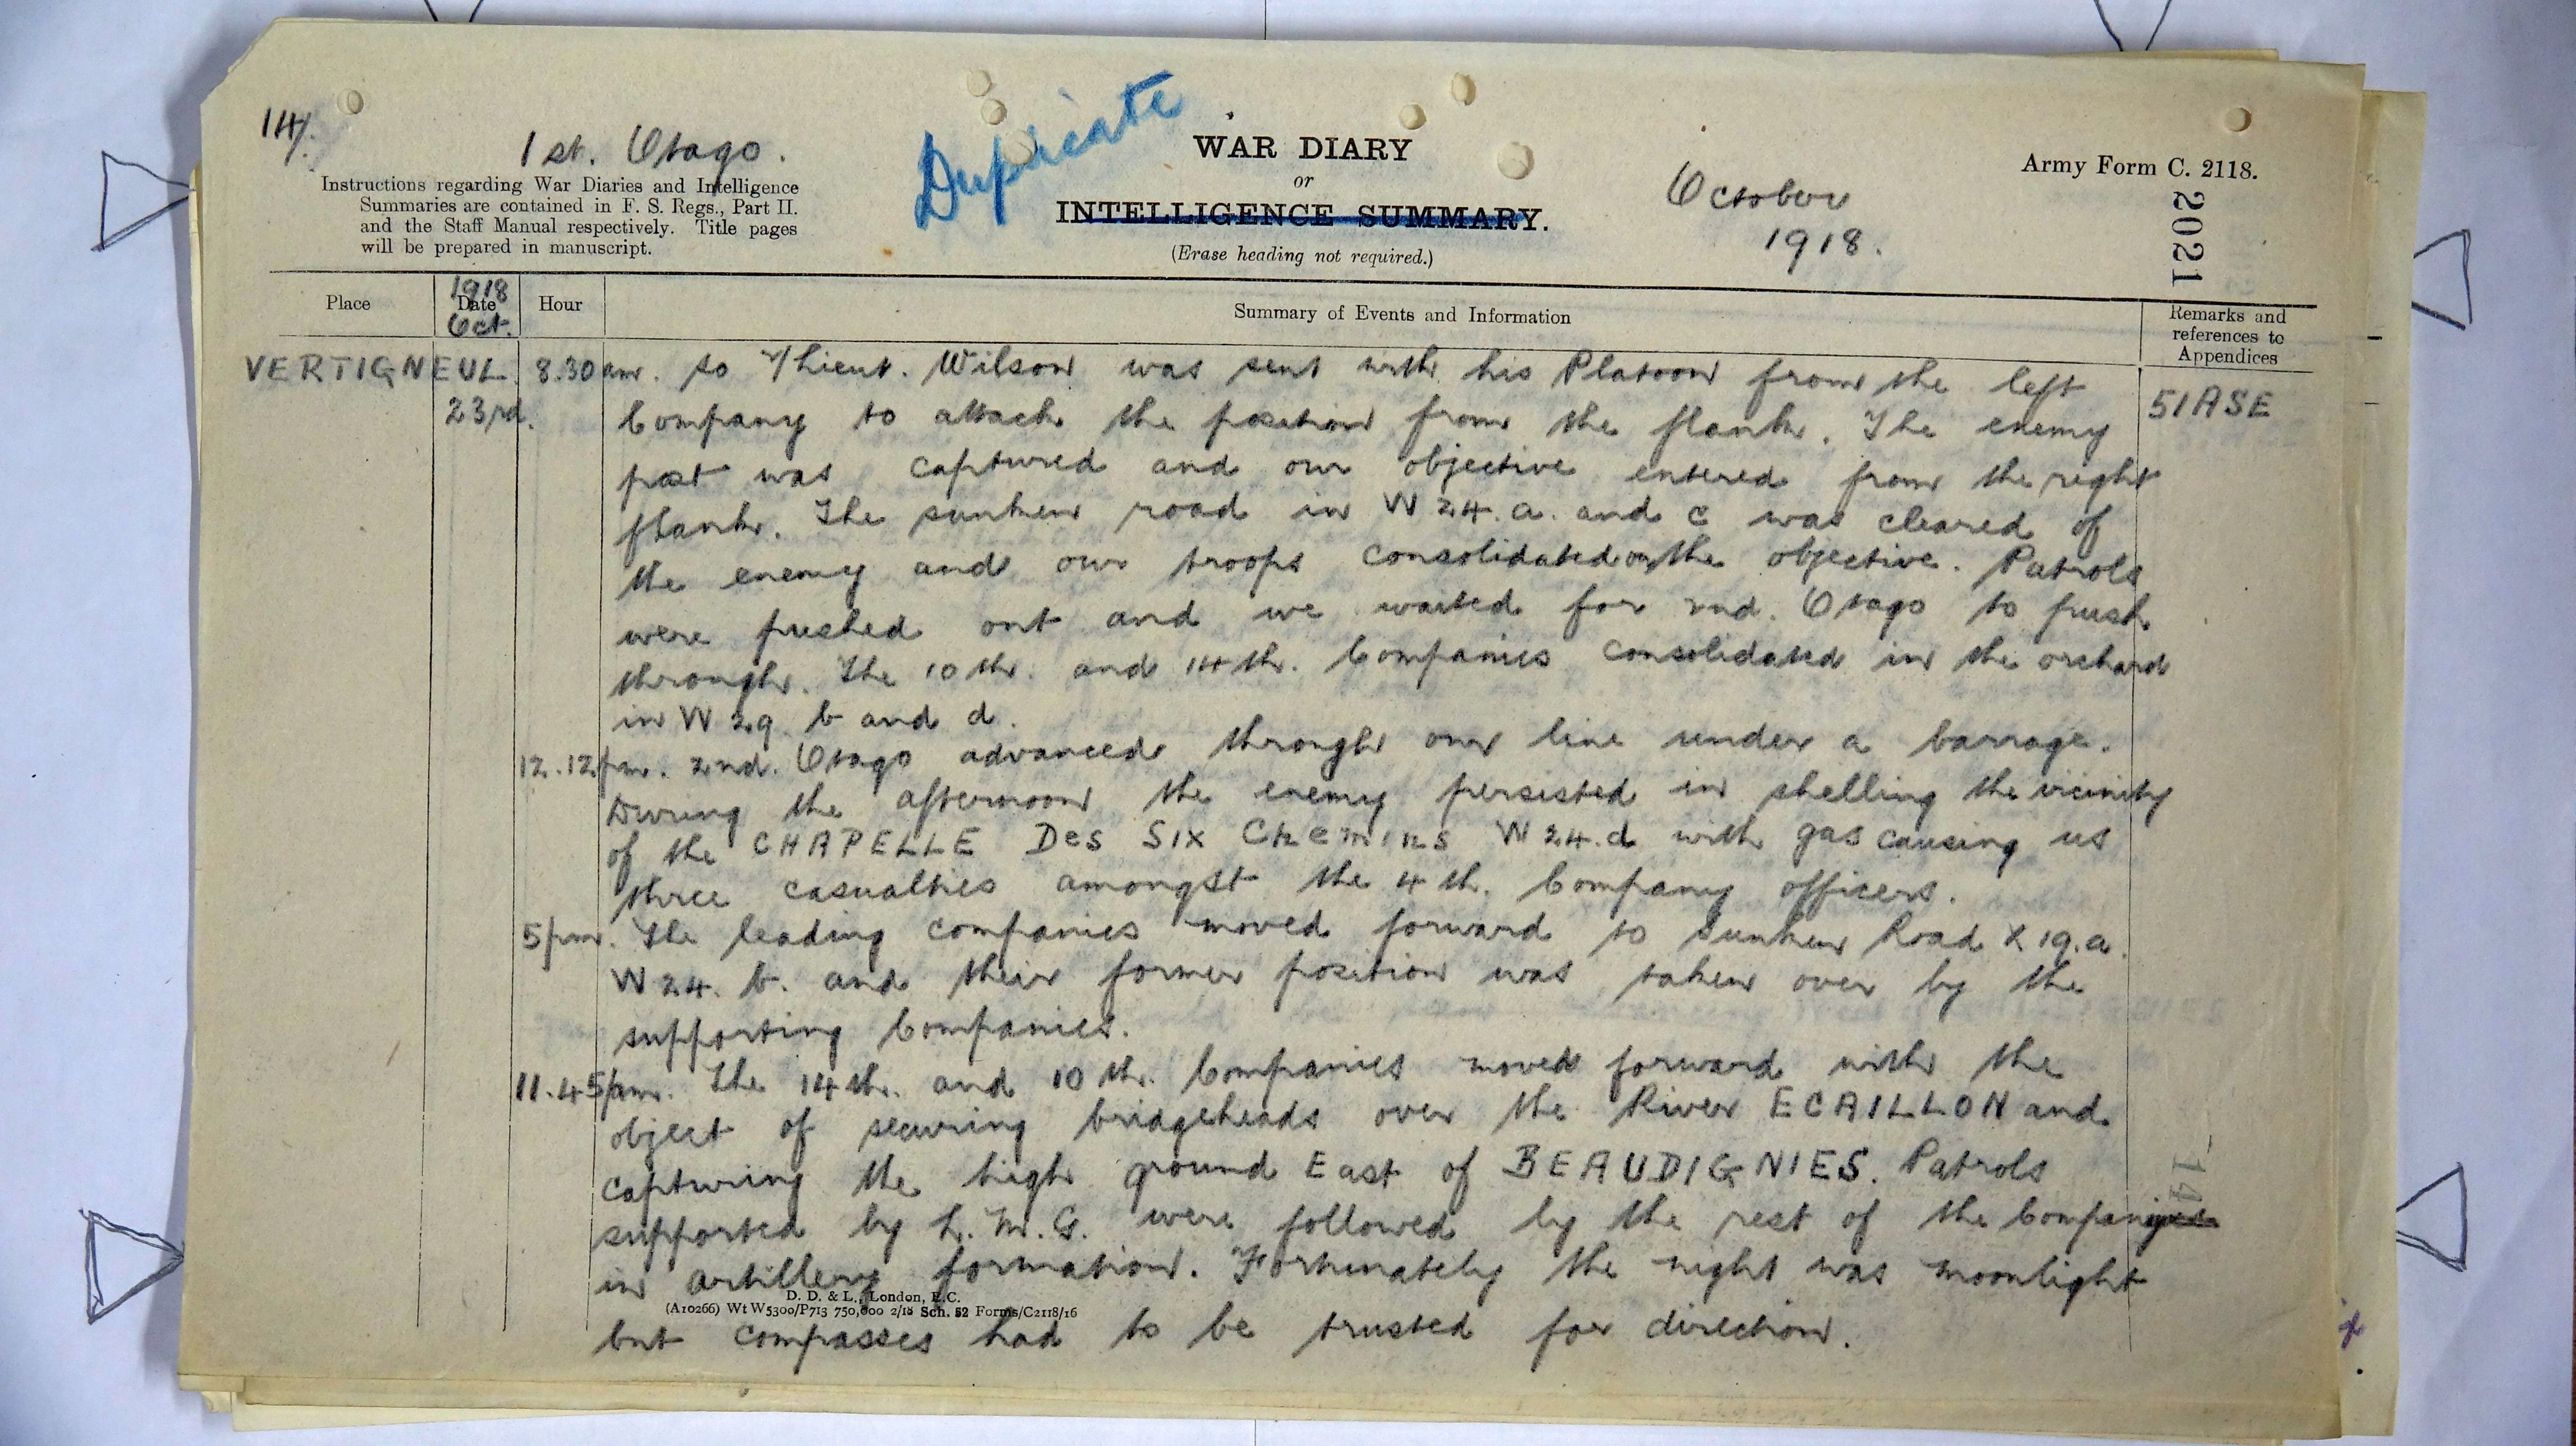 14.
1st. Otago.
Duplicate
WAR DIARY
or
INTELLIGENCE SUMMARY.
(Erase heading not required.)
Instructions regarding War Diaries and Intelligence
Summaries are contained in F. S. Regs., Part II.
and the Staff Manual respectively. Title pages
will be prepared in manuscript.
October
1918.
Army Form C. 2118.
2021
Place
1918
Date
Oct.
Hour
Summary of Events and Information
Remarks and
references to
Appendices
VERTIGNEUL. 8.30am. so 2/Lieut. Wilson was sent with his Platoon from the left
23rd. Company to attack the position from the flank. The enemy 51ASE
post was captured and our objective entered from the right
flank. The sunken road in W24.a. and c was cleared of
the enemy and our troops consolidated on the objective. Patrols
were pushed out and we waited for 2nd. Otago to push
through. The 10th. and 14th. Companies consolidated in the orchard
in W29. b and d.
12.12pm. 2nd. Otago advanced through our line under a barrage.
During the afternoon the enemy persisted in shelling the vicinity
of the CHAPELLE Des SIX CHEMINS W24.d with gas causing us
three casualties amongst the 4th. Company officers.
5pm. The leading companies moved forward to Sunken Road X19.a.
W24. b. and their former position was taken over by the
supporting Companies.
11.45pm. The 14th. and 10th. Companies moved forward with the
object of securing bridgeheads over the River ECAILLON and
capturing the high ground East of BEAUDIGNIES. Patrols
supported by L.M.G. were followed by the rest of the Companies
in artillery formation. Fortunately the night was moonlight
D. D. & L., London, E.C.
(A10266) Wt W5300/P713 750,000 2/18 Sch. 52 Forms/C2118/16
but compasses had to be trusted for direction.